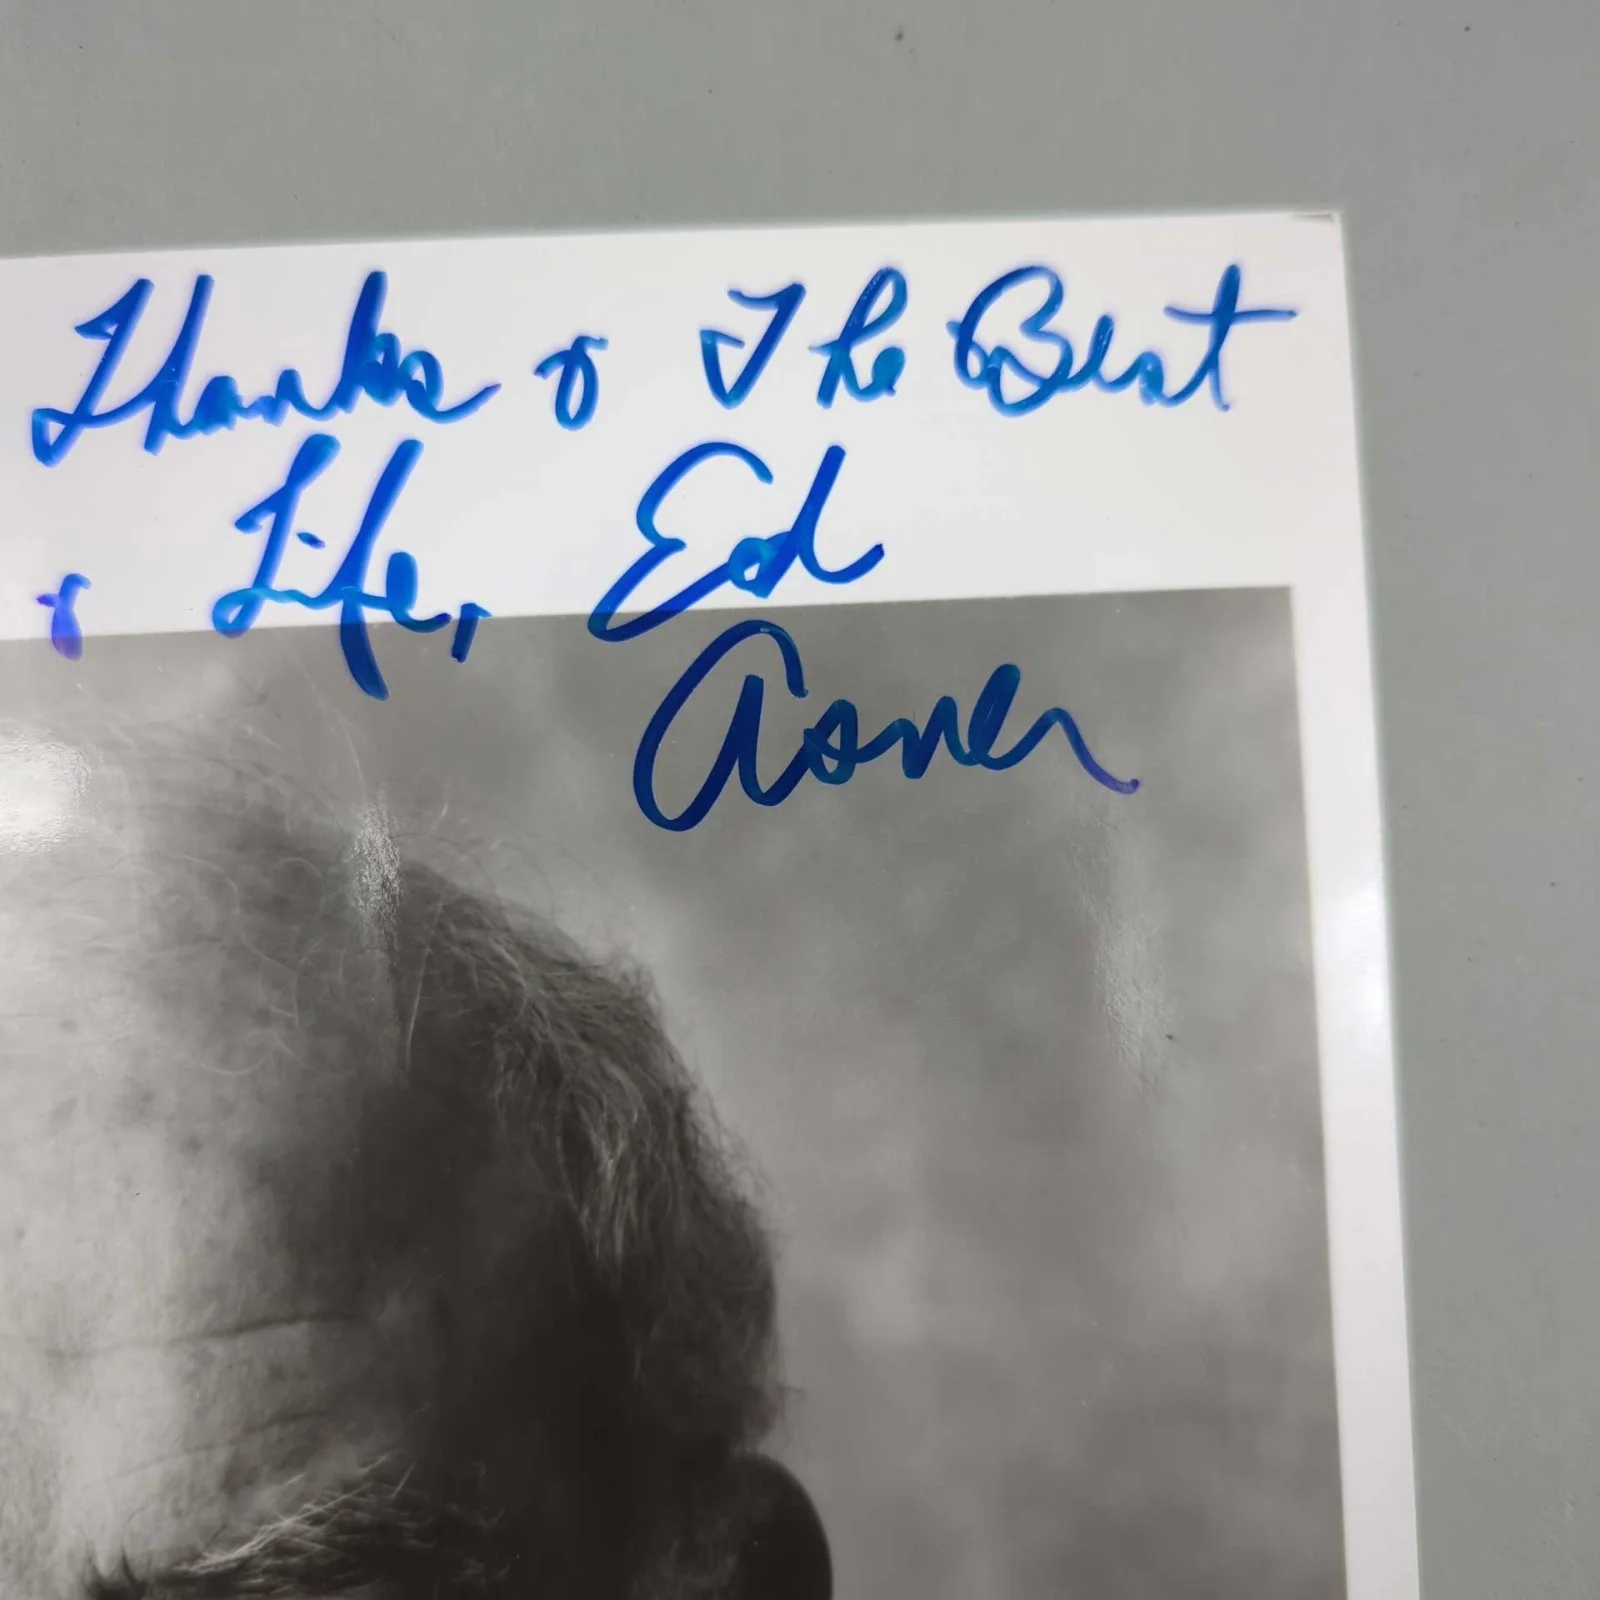 Thanks & The Best
& Life, Ed
Asner